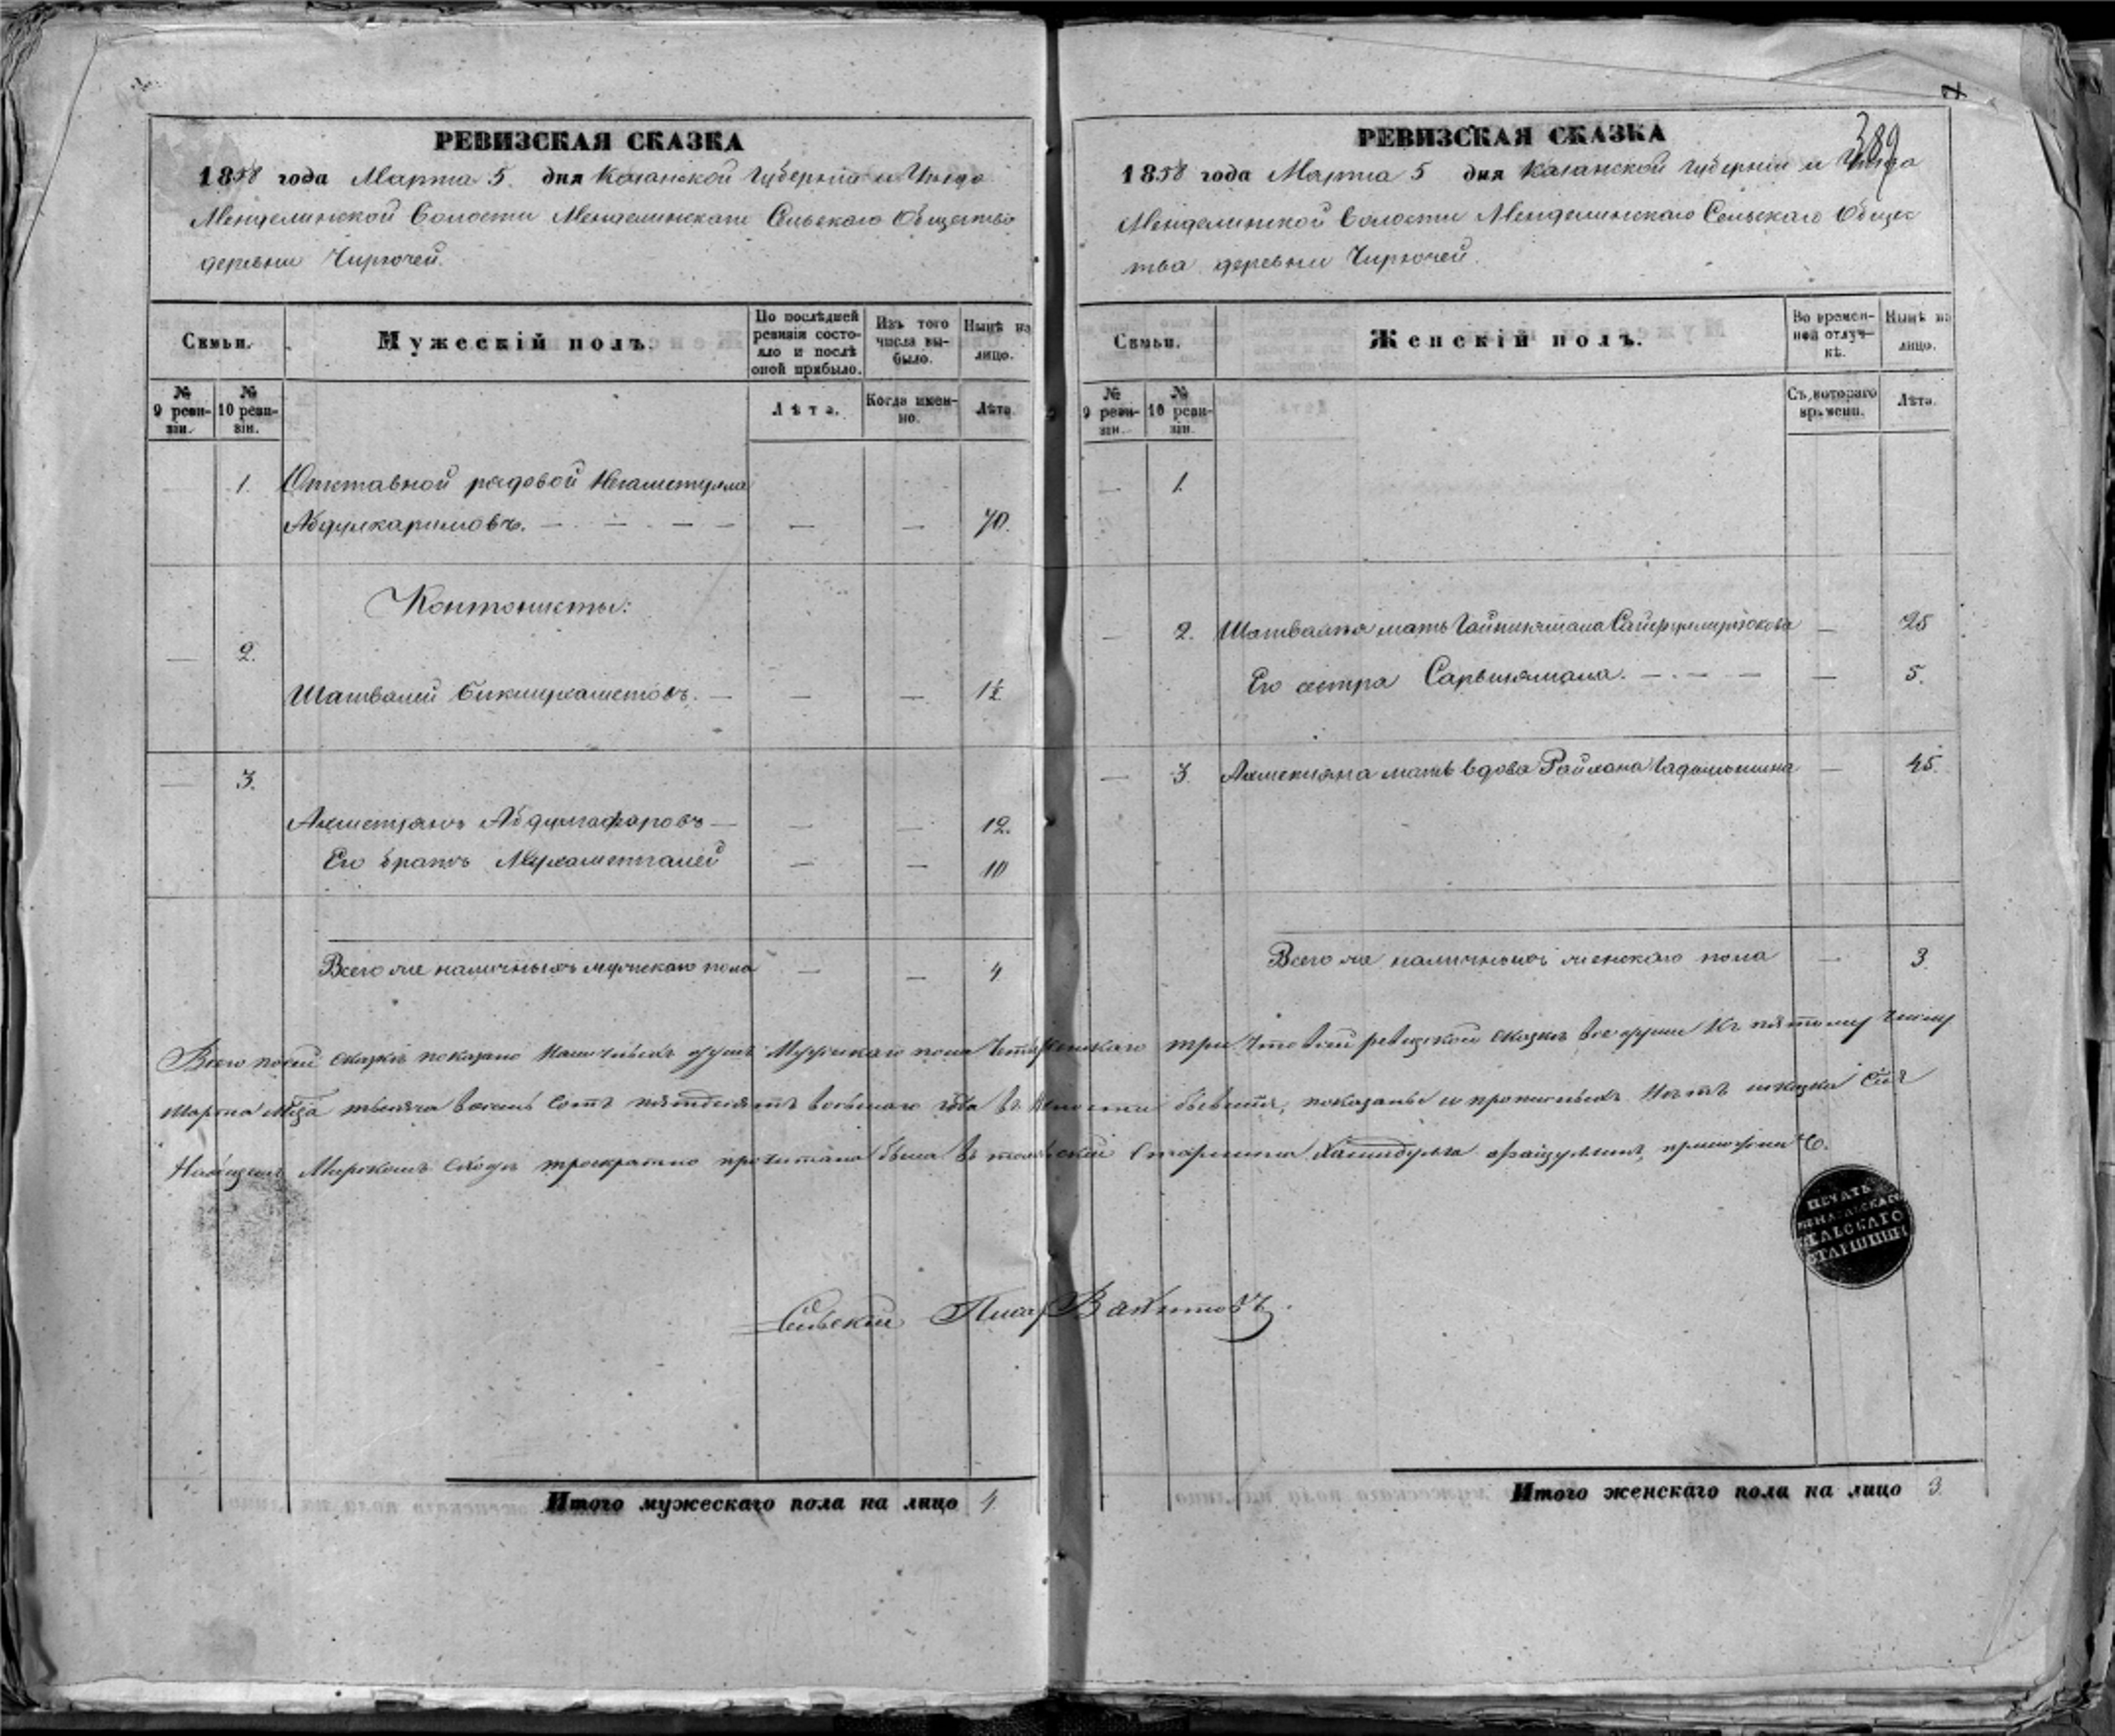 РЕВИЗСКАЯ СКАЗКА
1858 года Марта 5. дня Казанской Губерніи и Уѣзда
Менделинской Волости Менделинскаго Сельскаго Общества
деревни Чирючей.
Семьи.
Мужескій полъ.
По послѣдней ревизіи состояло и послѣ оной прибыло.
Изъ того числа выбыло.
Нынѣ на лицо.
№ 9 ревизіи.
№ 10 ревизіи.
Лѣта.
Когда именно.
Лѣта.
1. Отставной рядовой Негаметулла
Абдулкаримовъ. — — — 70.
Кантонисты:
2.
Шагивалей Бикмухаметовъ. — — — 1½.
3.
Ахметзянъ Абдулгафаровъ — — — 12.
Его братъ Мухаметгалей — — 10
Всего же наличныхъ мужскаго пола — — 4
Итого мужескаго пола на лицо 4
389
РЕВИЗСКАЯ СКАЗКА
1858 года Марта 5 дня Казанской Губерніи и Уѣзда
Менделинской Волости Менделинскаго Сельскаго Общес
тва деревни Чирючей.
Семьи.
Женскій полъ.
Во временной отлучкѣ.
Нынѣ на лицо.
№ 9 ревизіи.
№ 10 ревизіи.
Съ котораго времени.
Лѣта.
— 1.
— 2. мать — 25
Его сестра — 5.
— 3. мать вдова Райхана — 45.
Всего же наличныхъ женскаго пола — 3.
Всего по сей сказкѣ показано наличныхъ душъ Мужскаго пола женскаго три. Что в сей ревизской сказкѣ все души къ пятому числу
Марта тысяча восемь сотъ пятьдесятъ восьмаго года показаны и прописныхъ нѣтъ и сказка сія
Мирскомъ Сходѣ троекратно прочитана была в томъ Старшина
ПЕЧАТЬ
СЕЛЬСКАГО
СТАРШИНЫ
Сельскій Писарь Вахитовъ.
Итого женскаго пола на лицо 3